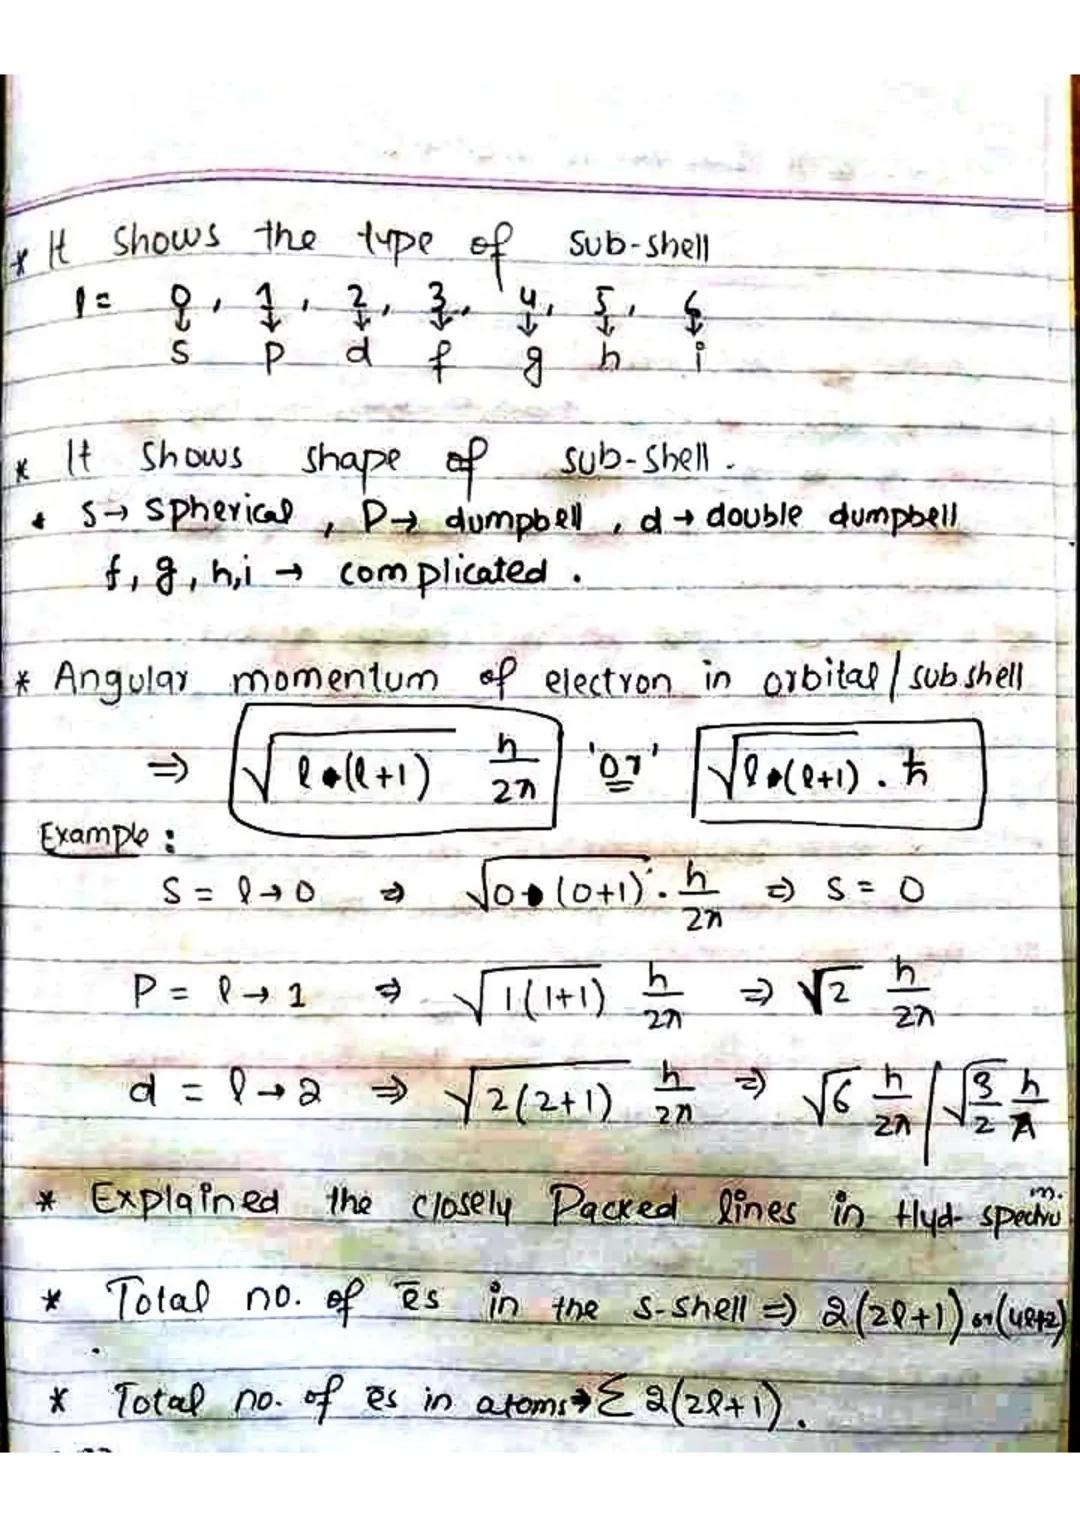 * It shows the type of sub-shell
l = 0, 1, 2, 3, 4, 5, 6
↓ ↓ ↓ ↓ ↓ ↓ ↓
s p d f g h i
* It shows shape of sub-shell.
* s→ spherical, P→ dumpbell, d→ double dumpbell
f, g, h,i → complicated.
* Angular momentum of electron in orbital/subshell
⇒ √l•(l+1) h/2π 'or' √l•(l+1) . ħ
Example:
S = l→0 ⇒ √0•(0+1) . h/2π ⇒ S = 0
P = l→1 ⇒ √1(1+1) h/2π ⇒ √2 h/2π
d = l→2 ⇒ √2(2+1) h/2π ⇒ √6 h/2π / √3/2 h/π
* Explained the closely Packed lines in Hyd- spectrum.
* Total no. of ēs in the s-shell ⇒ 2(2l+1) or (4l+2)
* Total no. of ēs in atoms → Σ 2(2l+1).